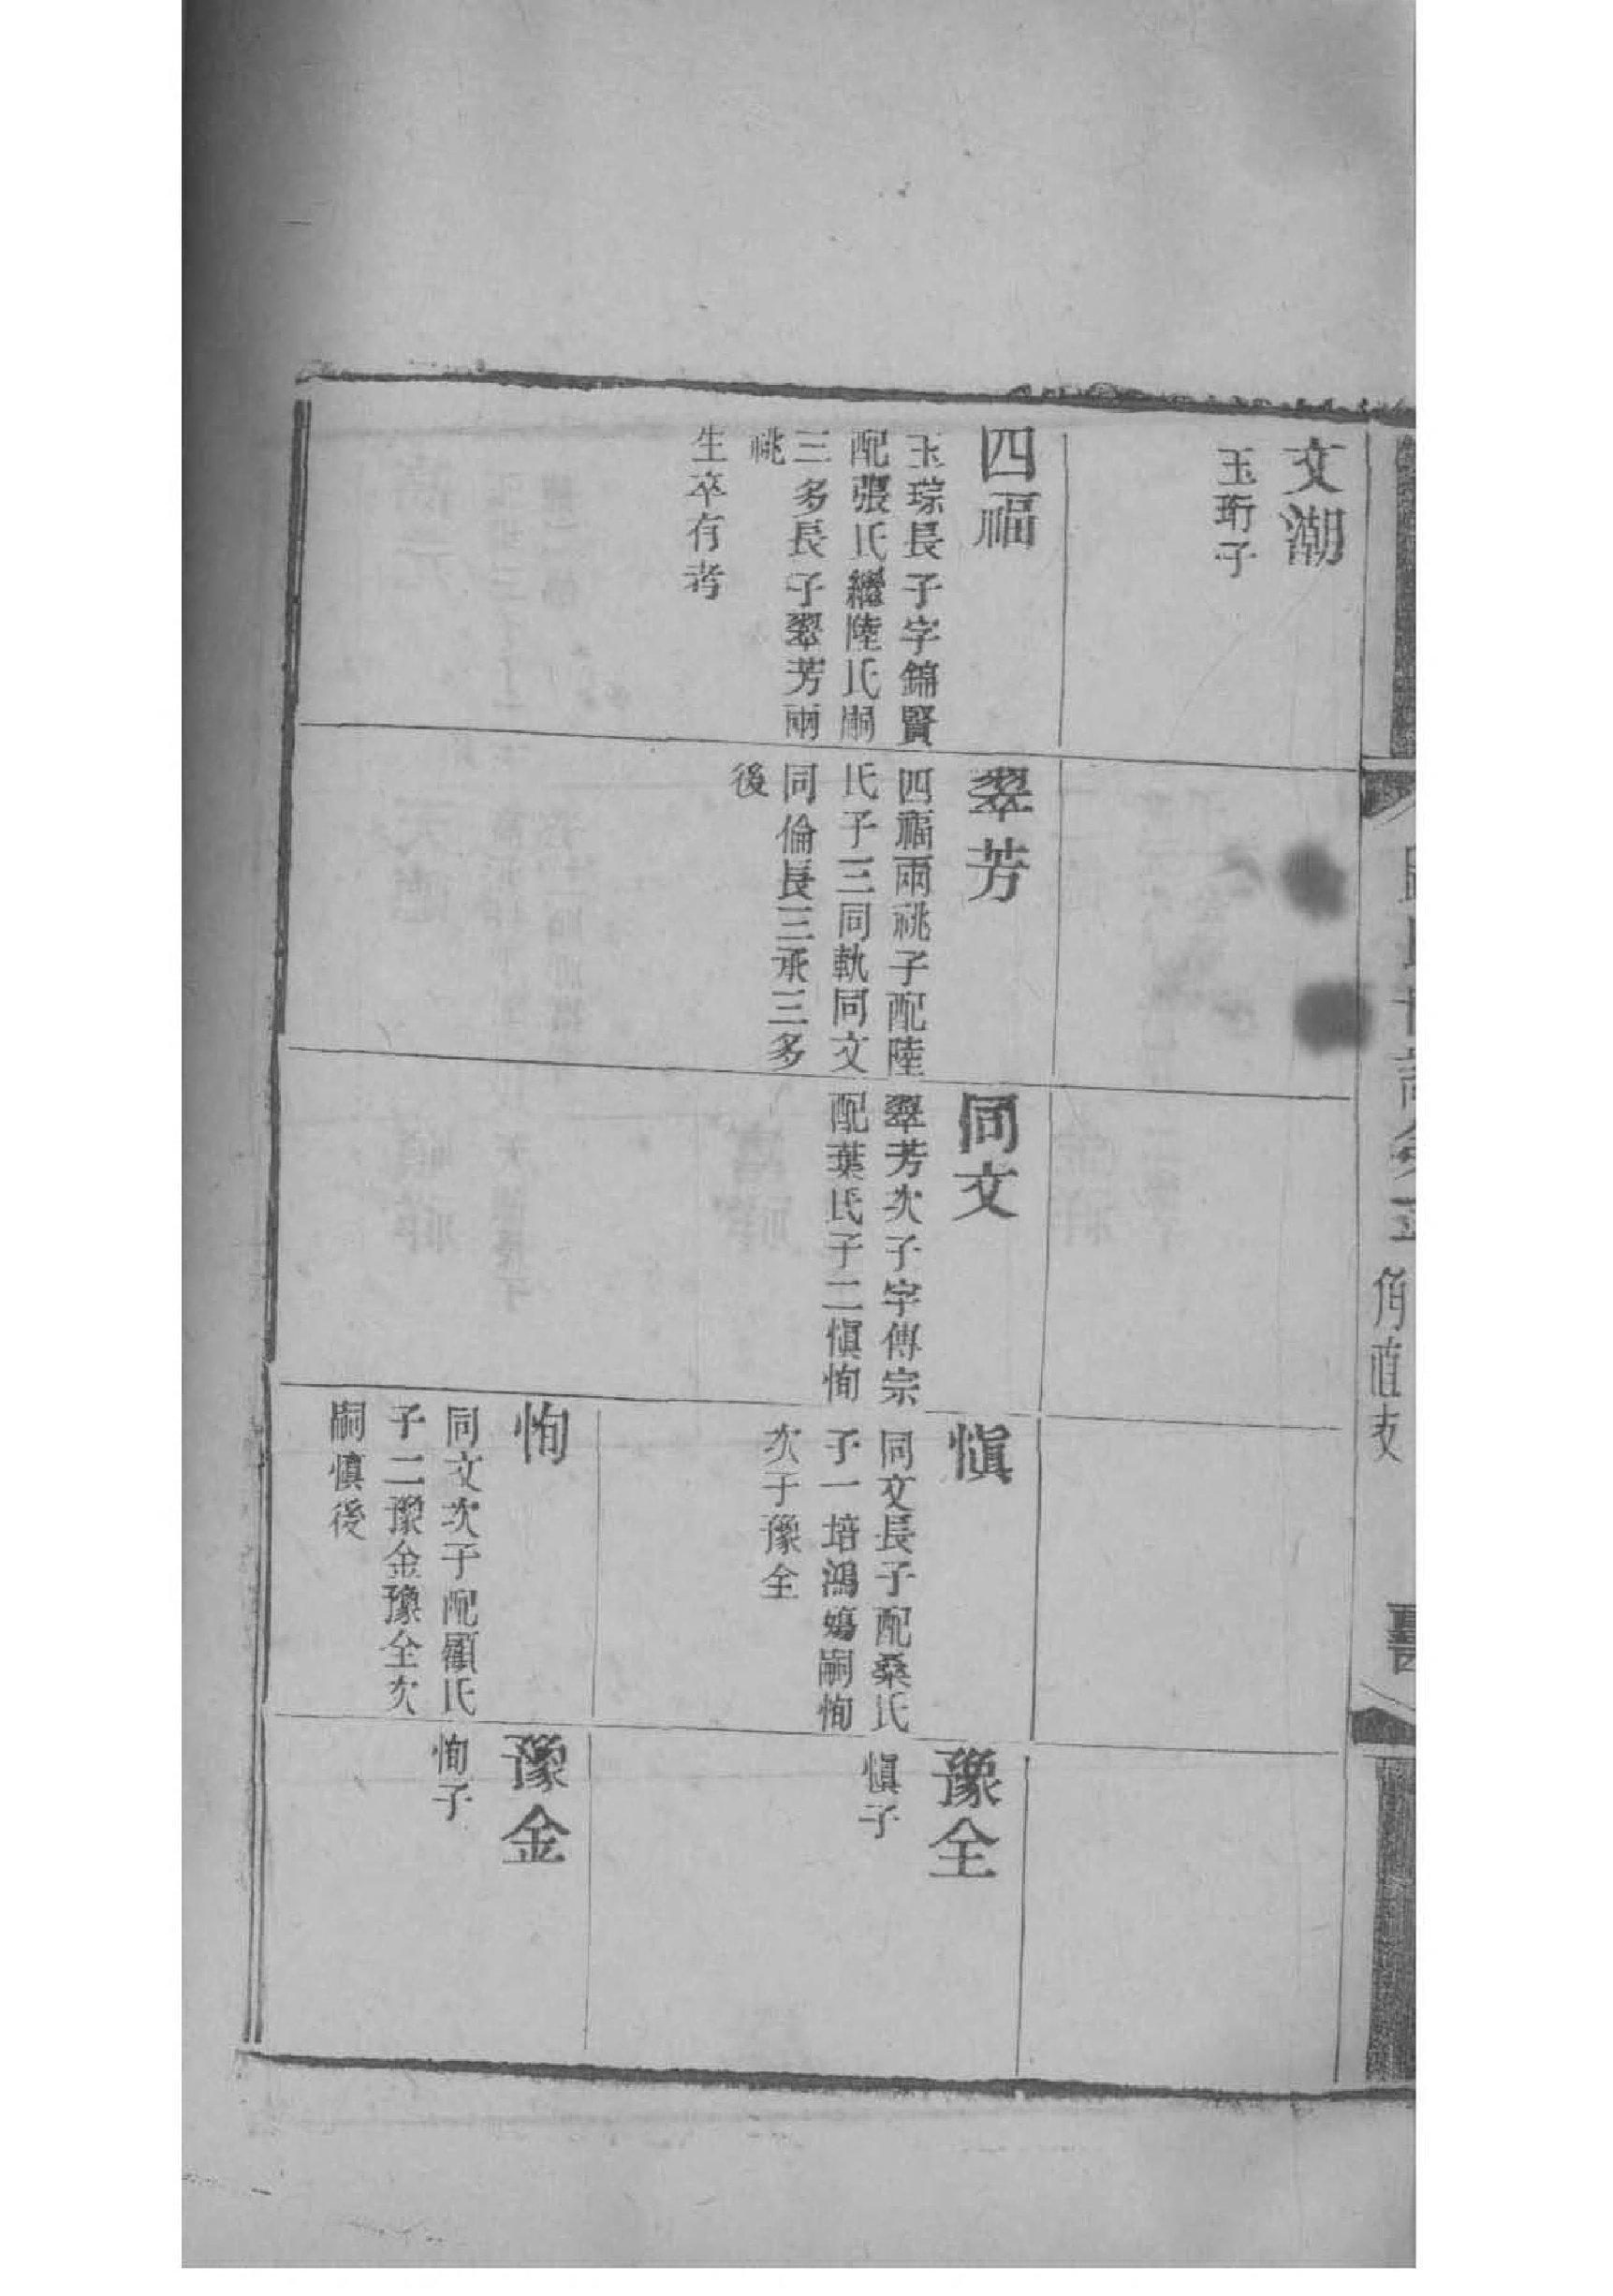 文潮
玉珩子
四福
玉琮長子字錦賢
配張氏繼陸氏嗣
三多長子翠芳兩
祧
生卒有考
翠芳
四福兩祧子配陸
氏子三同軌同文
同倫長三承三多
後
同文
翠芳次子字傳宗
配葉氏子二慎恂
慎
同文長子配桑氏
子一培鴻殤嗣恂
次子豫全
恂
同文次子配顧氏
子二豫金豫全次
嗣慎後
豫全
慎子
豫金
恂子
角直支